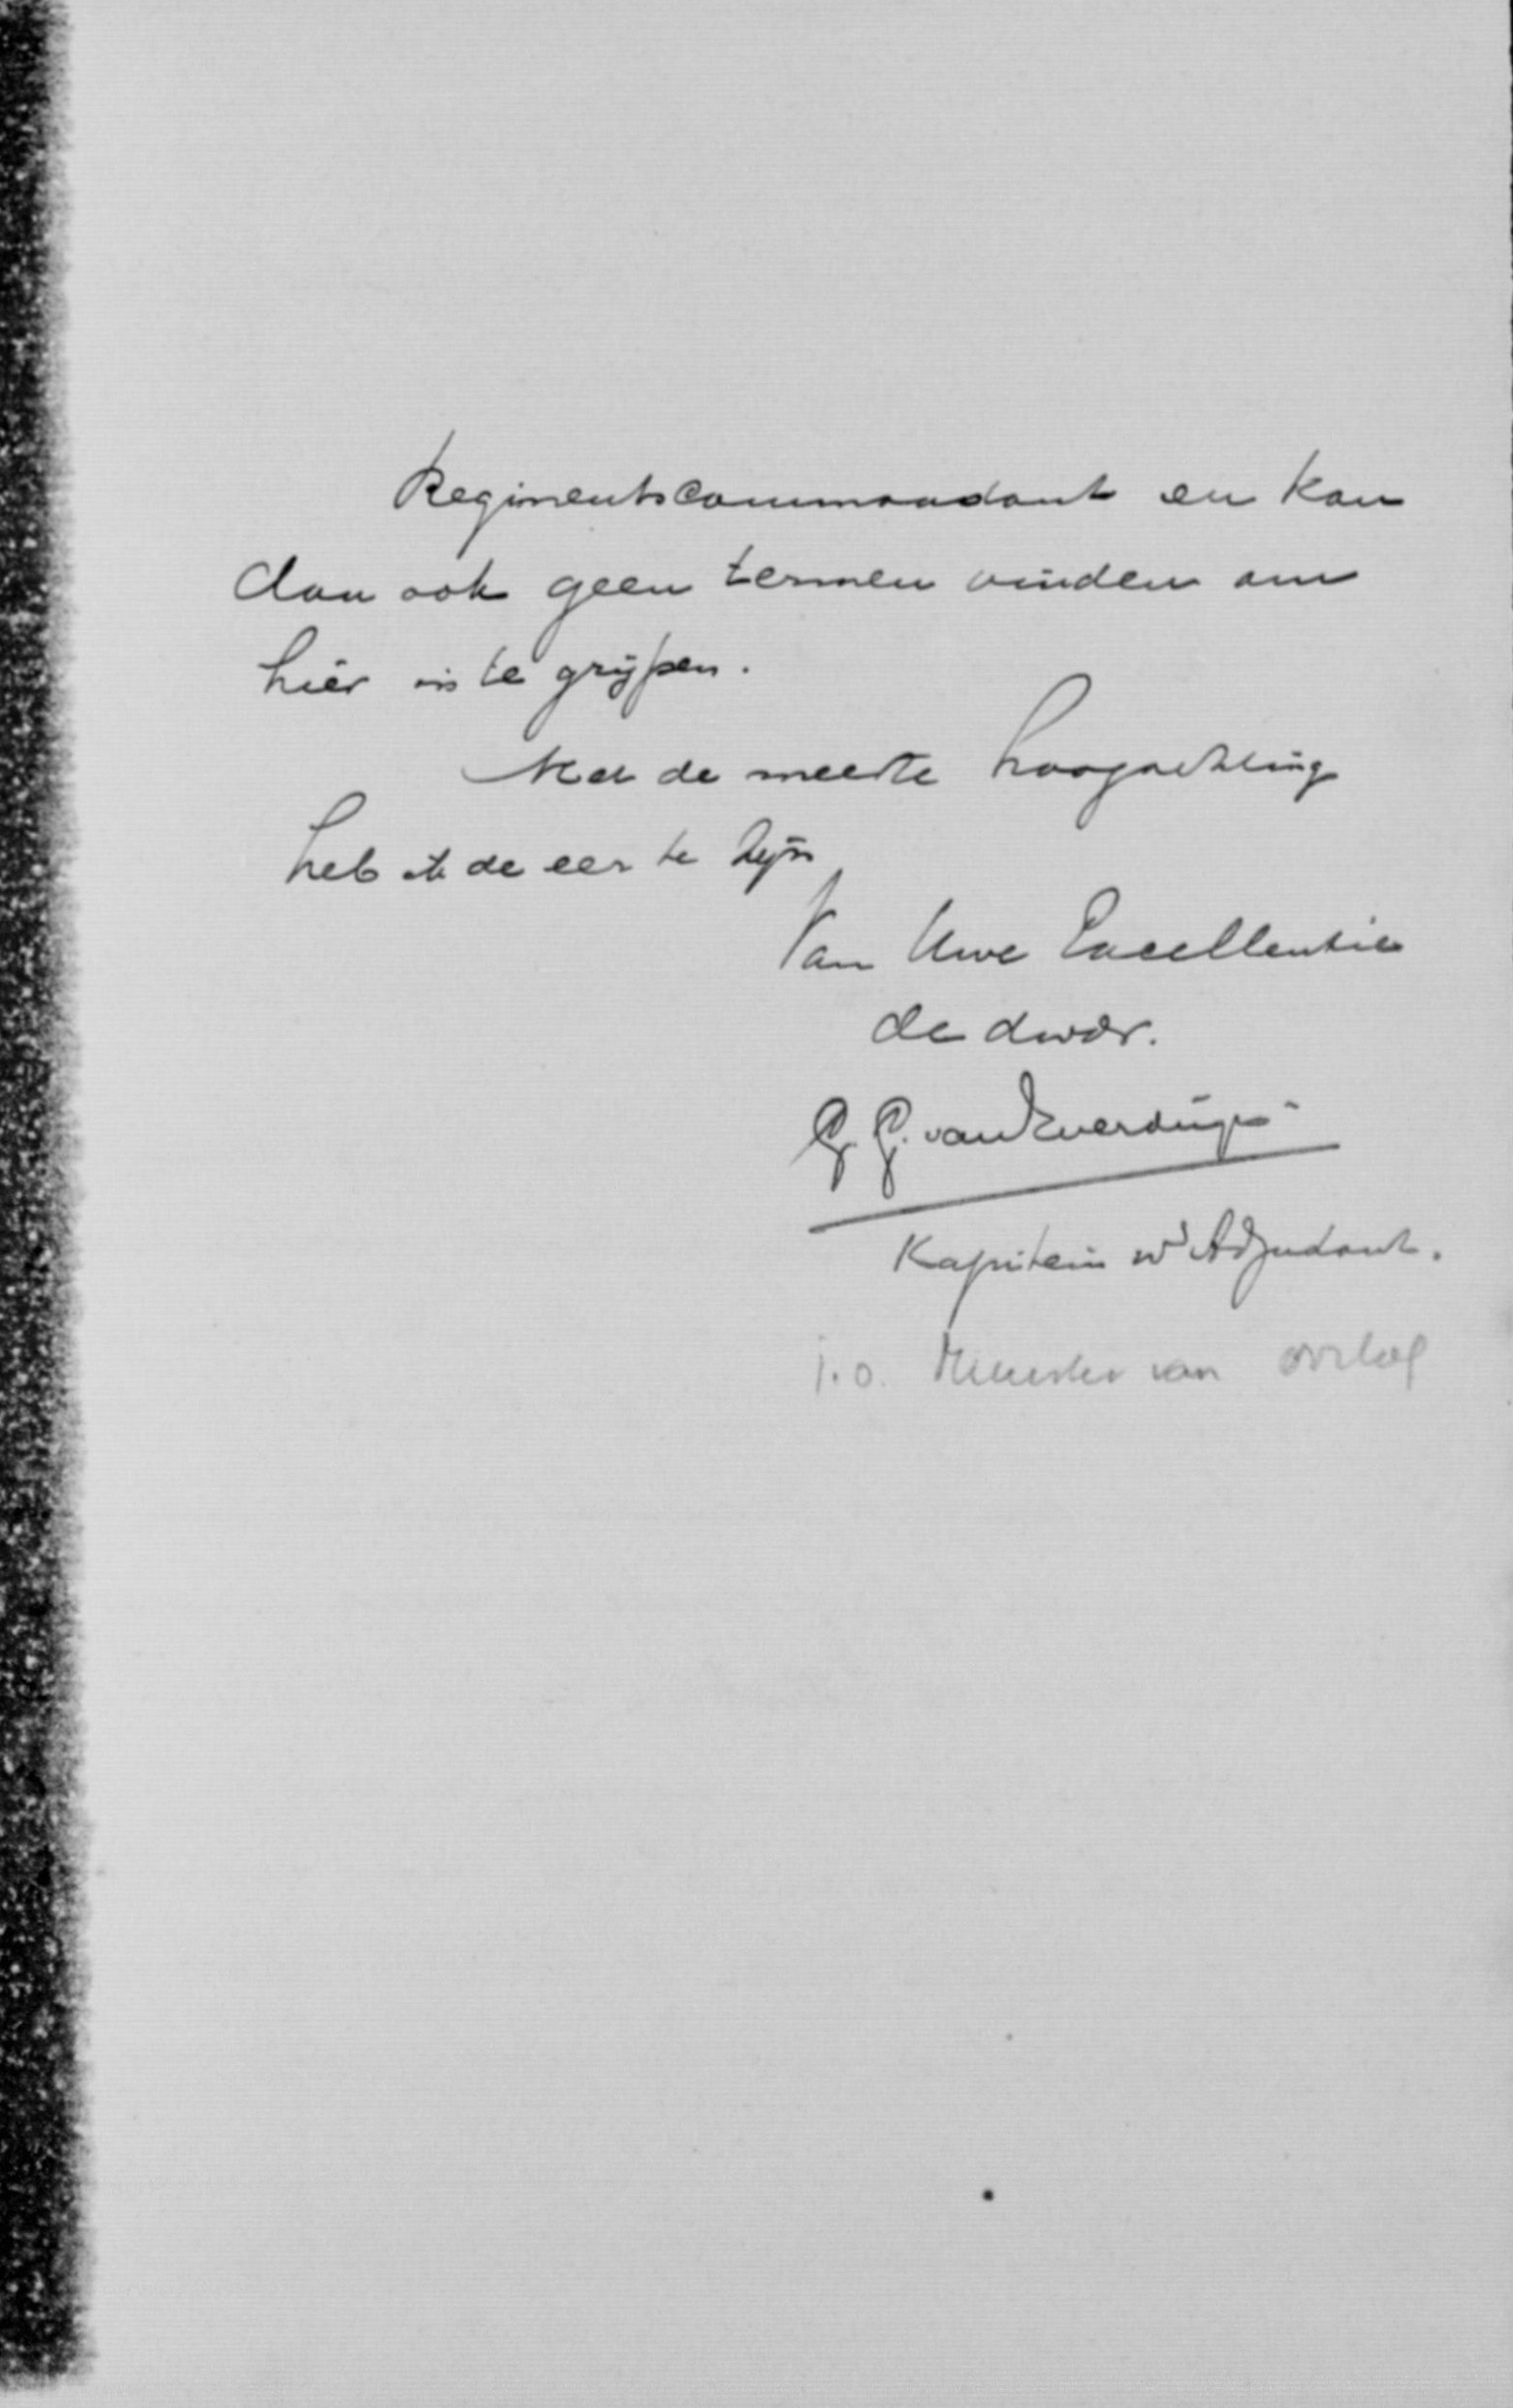 Regimentscommandant en kan
dan ook geen termen vinden om
hier in te grijpen.
Met de meeste hoogachting
heb ik de eer te zijn
Van Uwe Excellentie
de dwdr.
G. G. van Everdingen
Kapitein Adjudant.
i.o. Minister van oorlog